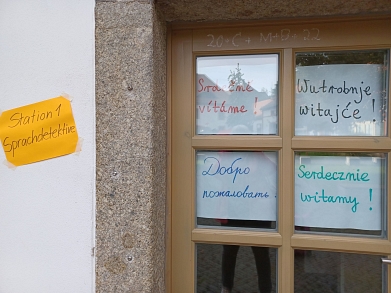 20*C+M+B+22
Station 1
Sprachdetektive
Srdečně
vítáme!
Wutrobnje
witajće!
Добро
пожаловать!
Serdecznie
witamy!